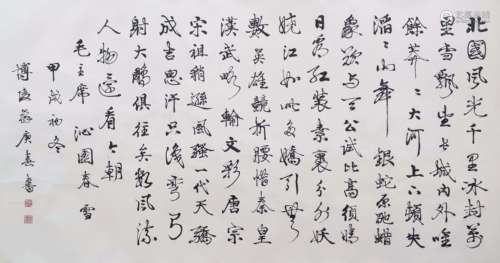 北國風光千里冰封萬
里雪飄望長城內外唯
餘莽〻大河上下頓失
滔〻山舞銀蛇原馳蠟
象欲與天公試比高須晴
日看紅裝素裹分外妖
嬈江如此多嬌引無
數英雄競折腰惜秦皇
漢武略輸文彩唐宗
宋祖稍遜風騷一代天驕
成吉思汗只識彎弓
射大鵰俱往矣數風流
人物還看今朝
毛主席 沁園春 雪
甲戌初冬
博陵蘇庚春書